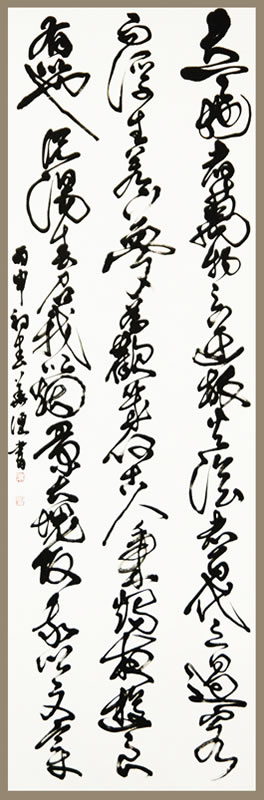 天地者萬物之逆旅光陰者百代之過客
而浮生若夢為歡幾何古人秉燭夜遊良
有以也況陽春召我以煙景大塊假我以文章
丙申初春書